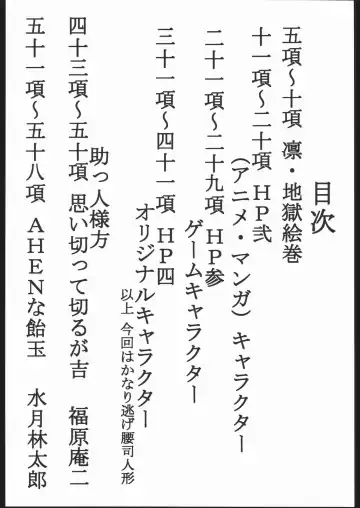 目次
五項～十項 凛・地獄絵巻
十一項～二十項 HP弐
(アニメ・マンガ)キャラクター
二十一項～二十九項 HP参
ゲームキャラクター
三十一項～四十一項 HP四
オリジナルキャラクター
以上 今回はかなり逃げ腰司人形
助っ人様方
四十三項～五十項 思い切って切るが吉 福原庵二
五十一項～五十八項 AHENな飴玉 水月林太郎